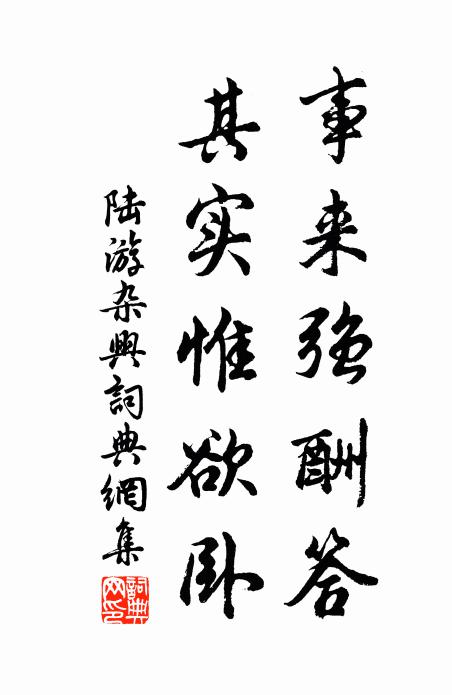 事来强酬答
其实惟欲卧
陆游杂興詞典網集
詞典网印